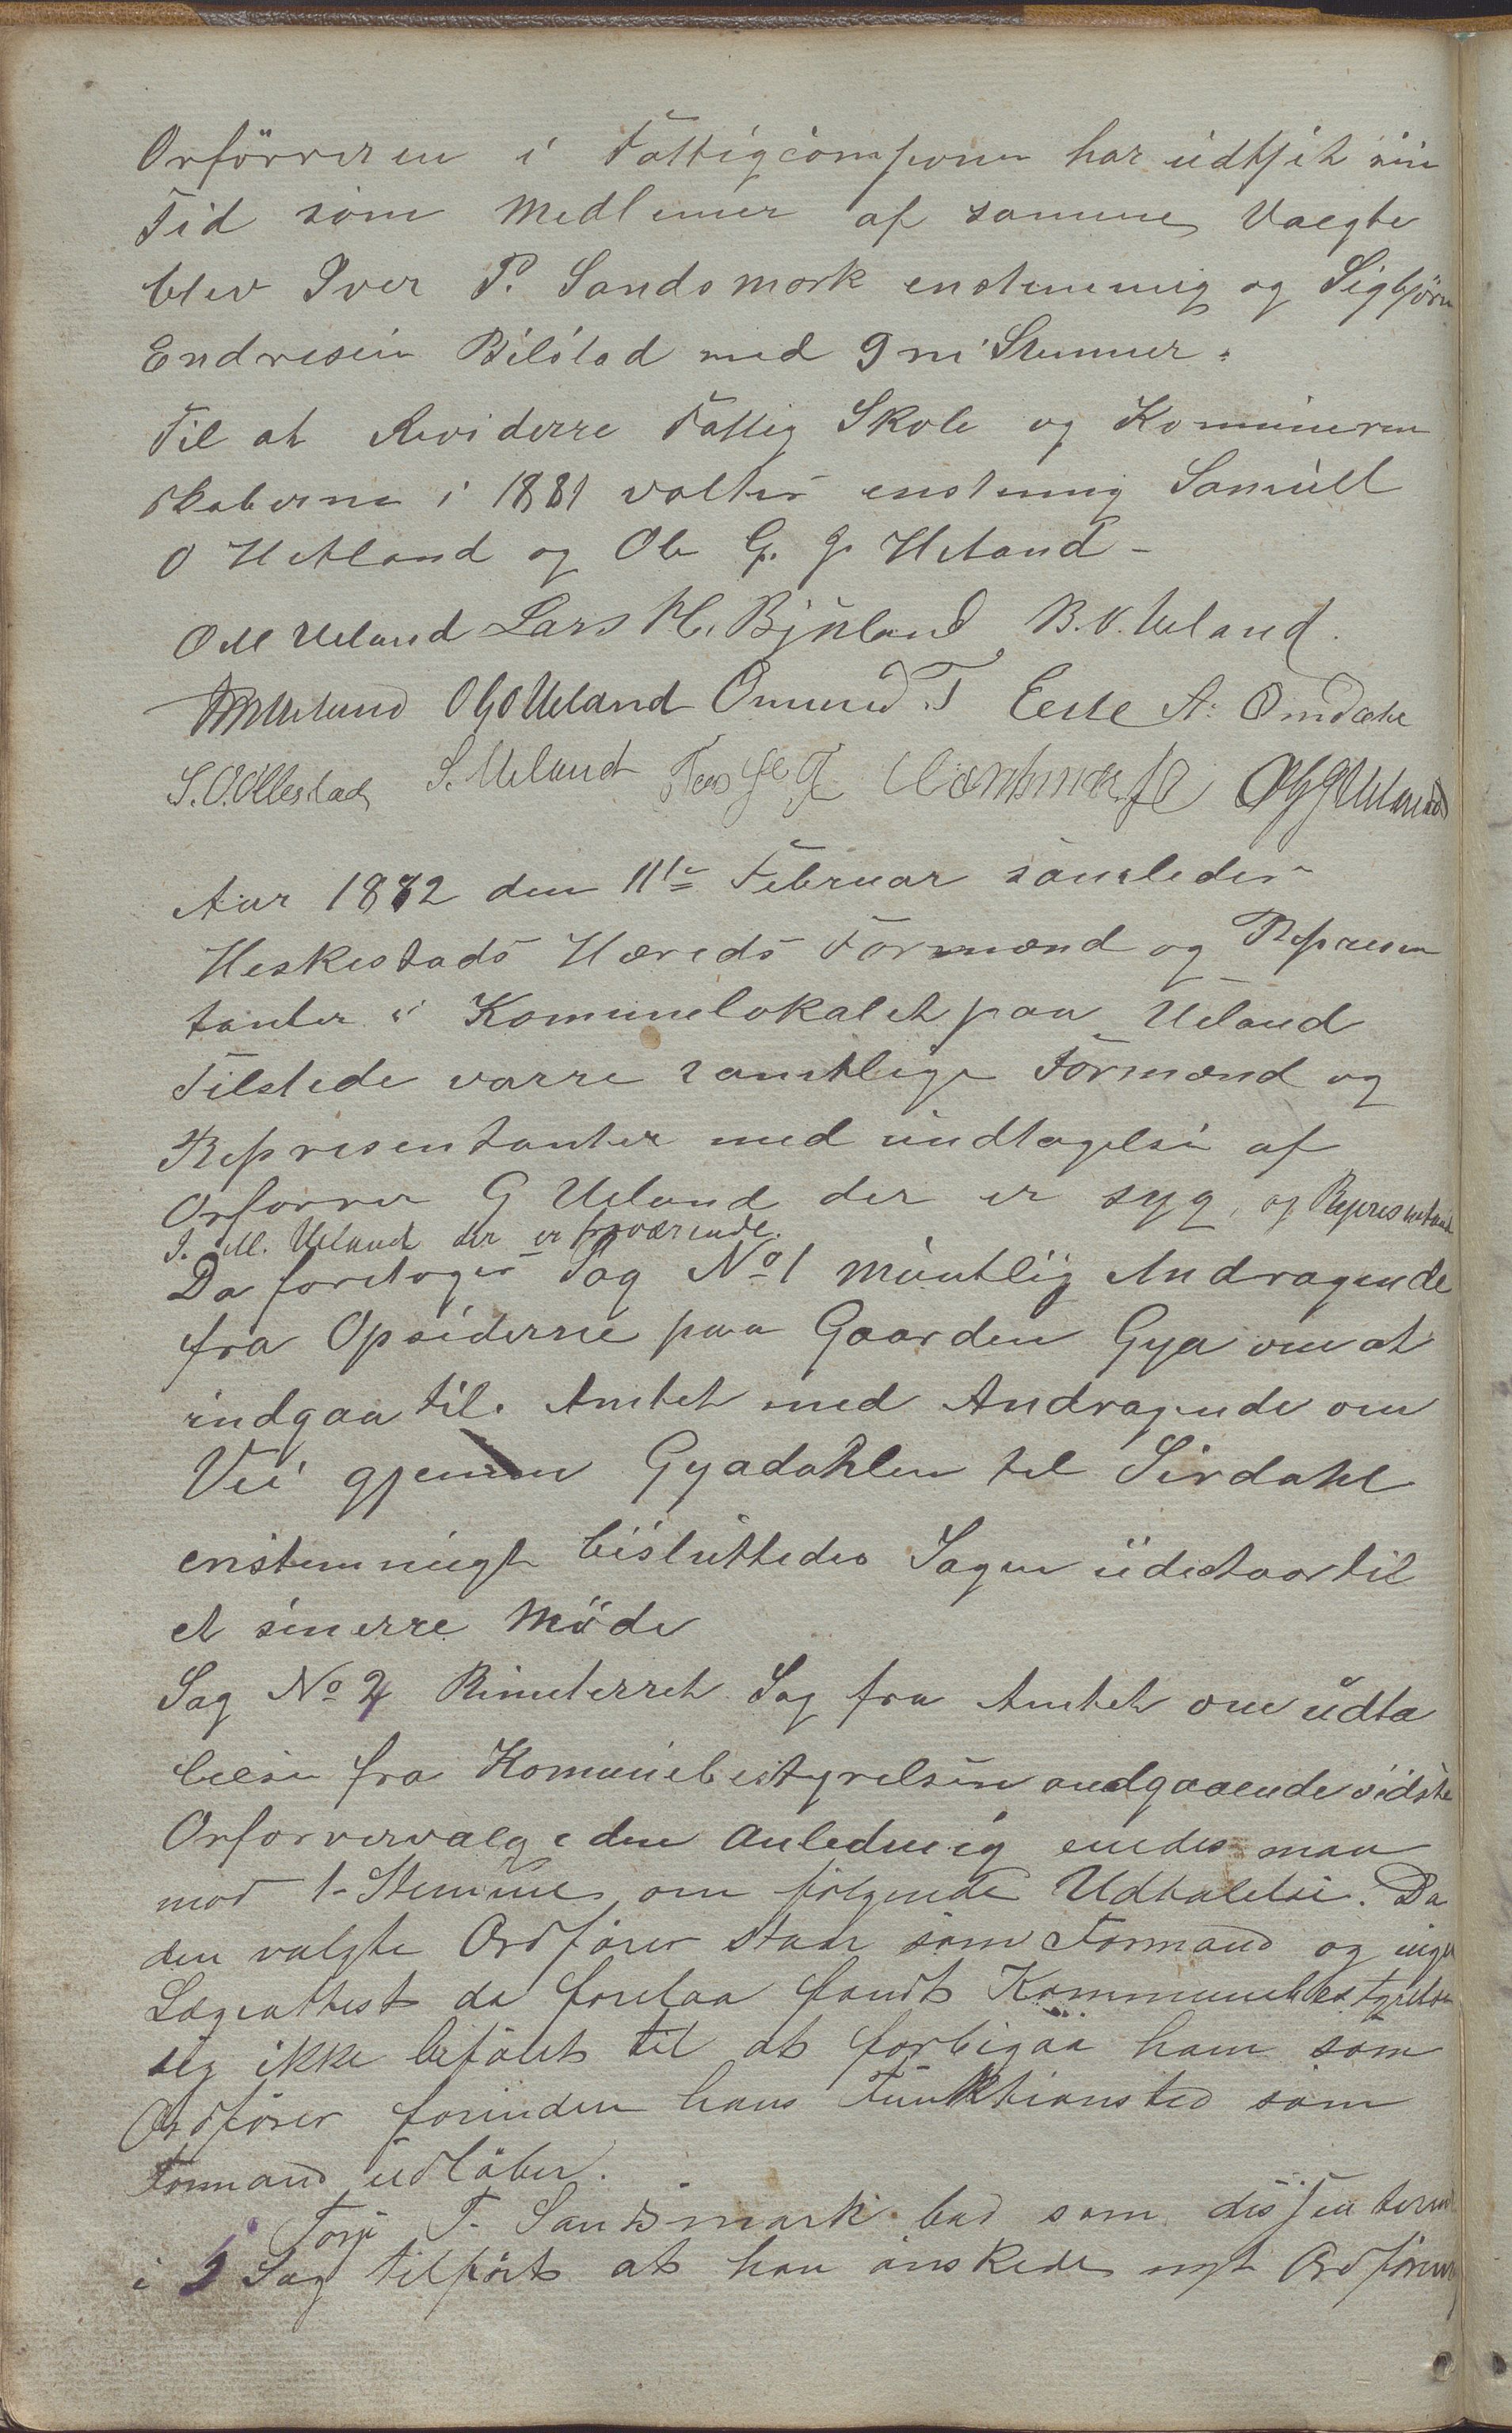 Orförreren i Fattigcomponen har udtjit sin
Tid som Medlemer af samme, Valgte
blev Iver P. Sandsmork enstemmig og Sigbjörn
Endresen Bilstad med 9 ni Stemmer.
Til at Reviderre Fattig Skole og Kommuneren
skaberne i 1881 valtes enstemig Samuel
O Uetland og Ole G. G. Ueland -
O M Ueland Lars H. Bjuland B. V. Ueland.
Ueland O G O Ueland Omund T Eeste A. Omdahl
S. O. Ollestad S. Ueland O G G Ueland
Aar 1882 den 11te Februar samledes
Heskestads Hæreds Formænd og Represen
tanter i Komunelokalet paa Ueland
Tilstede varre samtlige Formænd og
Representanter med undtagelse af
Orforrer G Ueland der er syg, og Representant
I. M. Ueland der er fraværende.
Da foretoges Sag No 1 Muntlig Andragende
fra Opsiderne paa Gaarden Gya om at
indgaa til Amtet med Andragende om
Vei gjennem Gyadahlen til Sirdahl
enstemmigt bisluttedes Sagen udestaar til
et sinerre Möde
Sag No 2 Rimeterret Sag fra Amtet om udta
lelse fra Komunebestyrelsen andgaaende sidste
Orforrervalg i den Anledning enedes man
mod 1 Stemme om fölgende Udtalelse. Da
den valgte Ordförer staar som Formand og ingen
Lægeattest da forelaa fandt Kommunebestyrelsen
sig ikke beföiet til at forbigaa ham som
Ordförer forinden hans Funktionstid som
Formand udlöber.
Torje T. Sandsmark bad som dissenterende
i Sag tilfört at han önskede nyt Ordförer